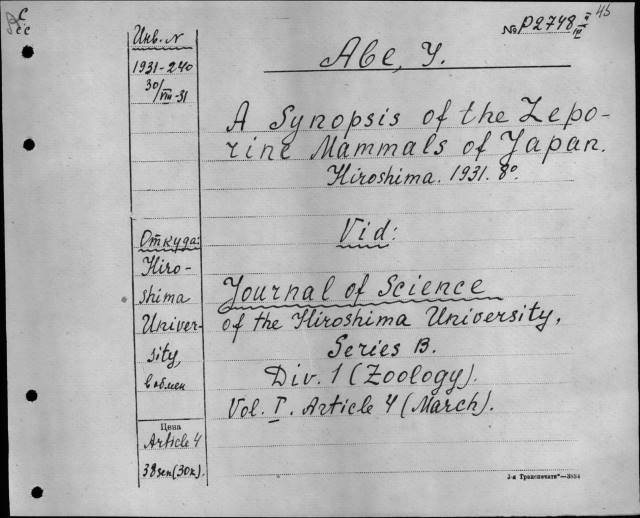 № P2748 II/IV 45
Abe, Y.
Инв. №
1931-240
30/VIII-31
A Synopsis of the Lepo-
rine Mammals of Japan.
Hiroshima. 1931. 8°.
Vid:
Откуда:
Hiro-
shima
Univer-
sity,
в обмен
Journal of Science
of the Hiroshima University,
Series B.
Div. 1 (Zoology).
Vol. I. Article 4 (March).
Цена
Article 4
38 sen (30к).
3-я Транспечати"—3834